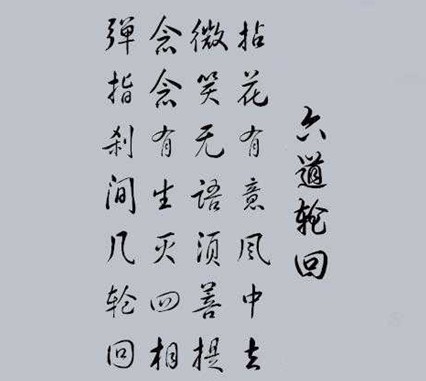 六道轮回
拈花有意风中去
微笑无语须菩提
念念有生灭四相
弹指刹间几轮回